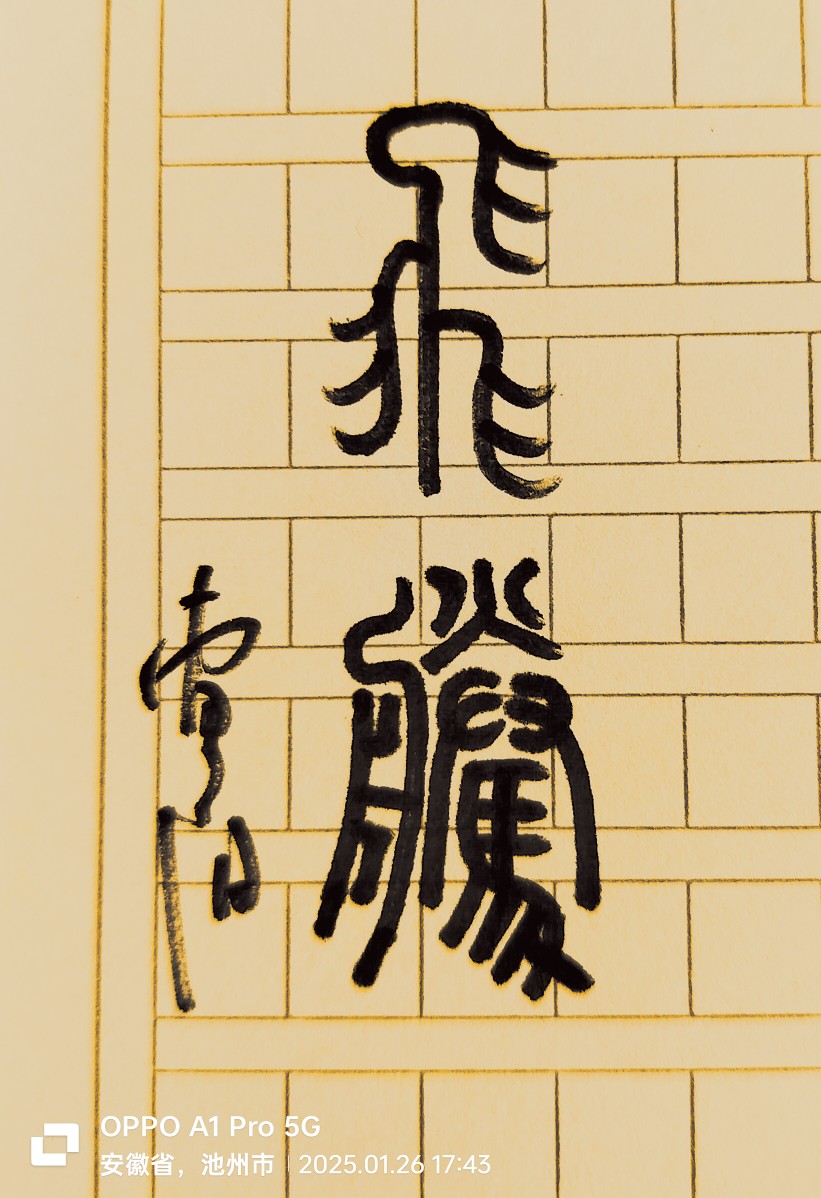 飛騰
OPPO A1 Pro 5G
安徽省，池州市 | 2025.01.26 17:43